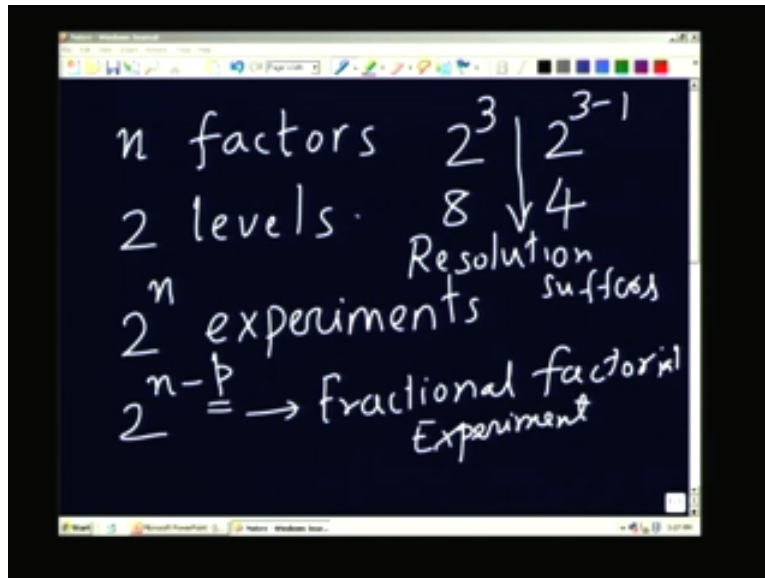 n factors 2³ 2³⁻¹
2 levels. 8 4
Resolution
suffers
2ⁿ experiments
2ⁿ⁻ᵖ → Fractional factorial
Experiment